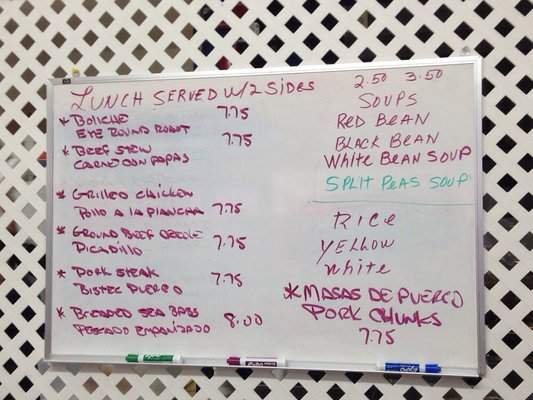 LUNCH SERVED W/2 SIDES
* BOLICHE 7.75
EYE ROUND ROAST
* BEEF STEW 7.75
CARNE CON PAPAS
* GRILLED CHICKEN
POLLO A LA PLANCHA 7.75
* GROUND BEEF CREOLE
PICADILLO 7.75
* PORK STEAK
BISTEC PUERCO 7.75
* BREADED SEA BASS
PESCADO EMPANIZADO 8.00
2.50 3.50
SOUPS
RED BEAN
BLACK BEAN
WHITE BEAN SOUP
SPLIT PEAS SOUP
RICE
YELLOW
WHITE
* MASAS DE PUERCO
PORK CHUNKS
7.75
EXPO